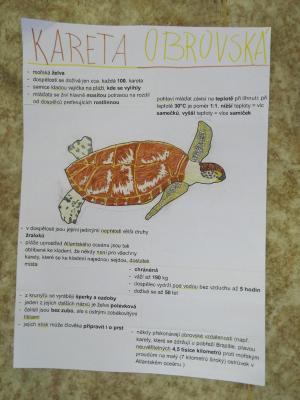 KARETA OBROVSKÁ
- mořská želva
- dospělosti se dožívá jen cca. každá 100. kareta
- samice kladou vajíčka na pláži, kde se vylíhly
- mláďata se živí hlavně masitou potravou na rozdíl
od dospělců preferujících rostlinnou
pohlaví mláďat závisí na teplotě při líhnutí: při
teplotě 30°C je poměr 1:1, nižší teploty = víc
samečků, vyšší teploty = více samiček
- v dospělosti jsou jejími jedinými nepřáteli větší druhy
žraloků
- pláže uprostřed Atlantského oceánu jsou tak
oblíbené ke kladení, že někdy není pro všechny
karety, které se ke kladení najednou sejdou, dostatek
místa
- chráněná
- váží až 190 kg
- dospělec vydrží pod vodou bez vzduchu až 5 hodin
- dožívá se až 50 let
- z krunýřů se vyrábějí šperky a ozdoby
- jeden z jejich dalších názvů je želva polévková
- čelisti jsou bez zubů, ale s ostrými zobákovitými
lištami
- jejich stisk může člověka připravit i o prst
- někdy překonávají obrovské vzdálenosti (např.
karety, které se zdržují u pobřeží Brazílie, plavou
neuvěřitelných 4,5 tisíce kilometrů proti mořským
proudům na malý (7 kilometrů široký) ostrůvek v
Atlantském oceánu.)